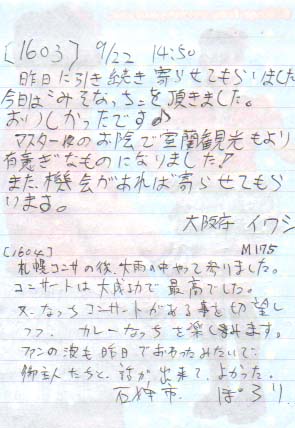 [1603] 9/22 14:50
昨日に引き続き寄らせてもらいました
今日は"みそなっち"を頂きました。
おいしかったです♪
マスター のお陰で室蘭観光もより
有意ぎなものになりました!
また機会があれば寄らせてもら
います。
大阪府 イワシ
[1604] M175
札幌コンサの後、大雨の中やって参りました。
コンサートは大成功で最高でした。
又、なっちコンサートがある事を切望し
つつ、カレーなっちを楽しみます。
ファンの波も昨日でおわったみたいで、
御主人たちと、話が出来て、よかった。
石狩市 ぽろり